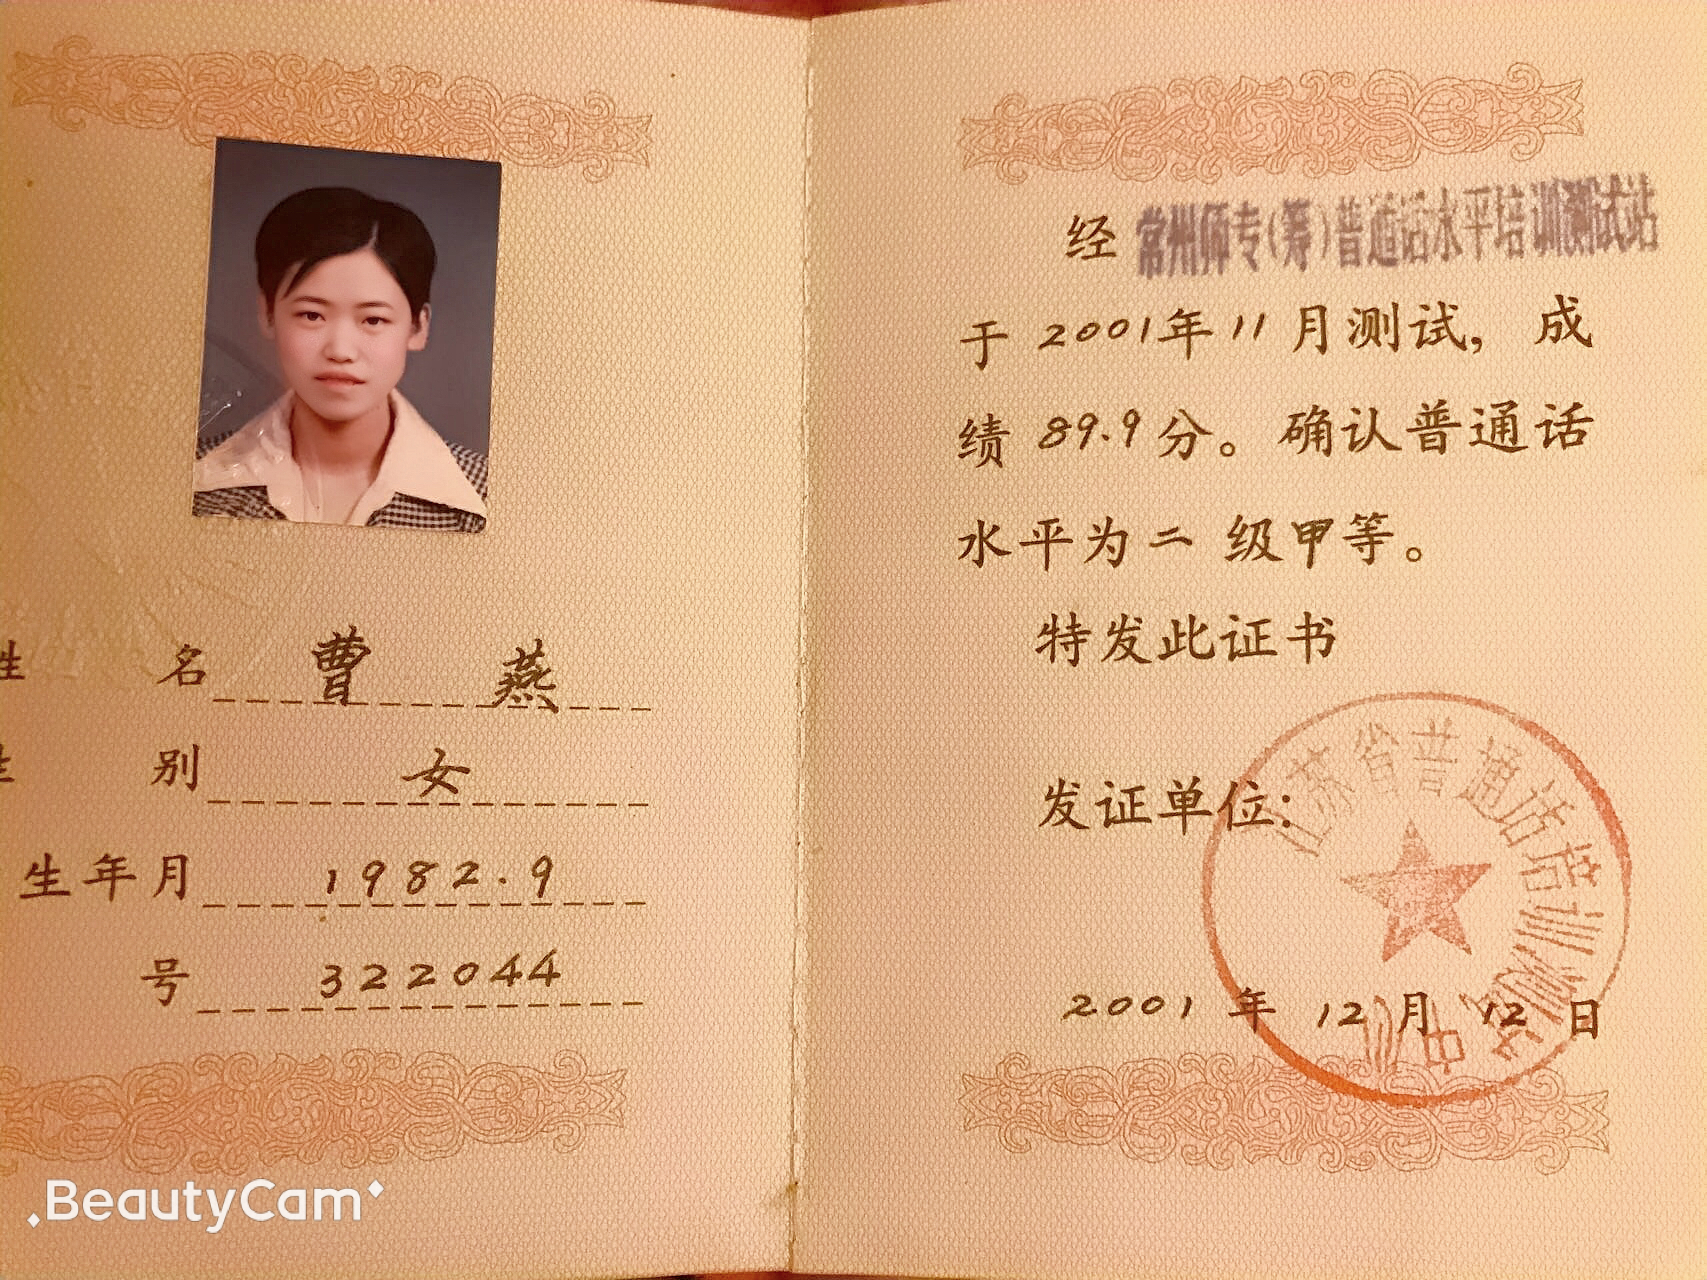 姓 名 曹 燕
性 别 女
生年月 1982.9
号 322044
经 常州师专(筹)普通话水平培训测试站
于 2001年11月测试，成
绩 89.9 分。确认普通话
水平为二 级甲等。
特发此证书
发证单位：
江苏省普通话培训测试中心
2001 年 12月 12 日
BeautyCam